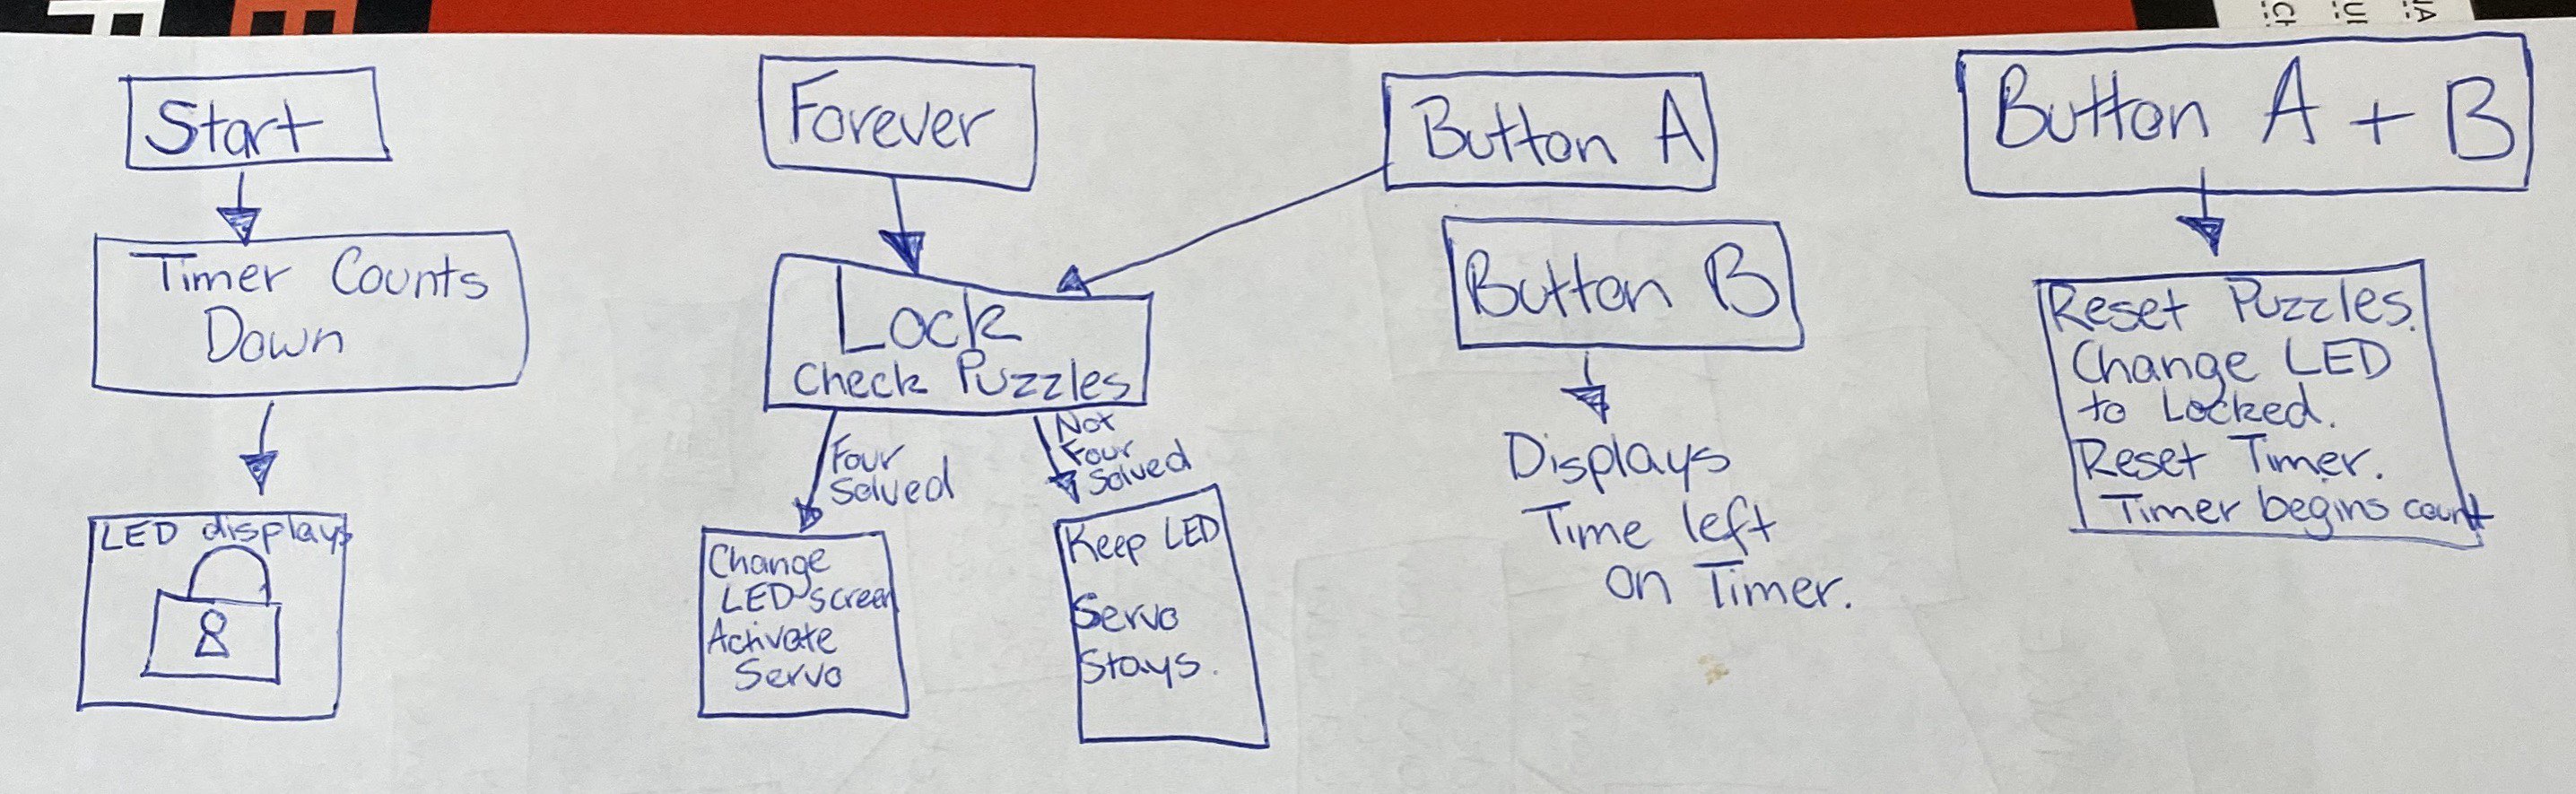 Start
Timer Counts
Down
LED displays
8
Forever
Lock
Check Puzzles
Four
Solved
Not
Four
Solved
Change
LED screen
Activate
Servo
Keep LED
Servo
Stays.
Button A
Button B
Displays
Time left
on Timer.
Button A + B
Reset Puzzles.
Change LED
to Locked.
Reset Timer.
Timer begins count